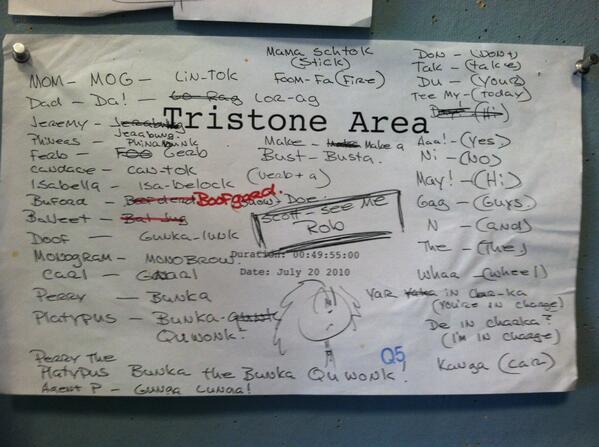 Mama Schtok
(Stick)
Foom-Fa (Fire)
MOM - MOG - Lin-tok
Dad - Da! - Go Rag Lor-ag
Tristone Area
Jeremy -
Jerabung
Phineas - Phinabunk
Ferb - Foo Gerb
Candace - Can-tok
Isabella - Isa-belock
Buford - Boofgerd.
Baljeet -
Doof - Gunka-lunk
Monogram - Monobrow.
Carl -
Perry - Bunka
Platypus - Bunka-
Quwonk.
Perry the
Platypus Bunka the Bunka Quwonk!
Agent P - Gunga Lunga!
Make - Make a
Bust - Busta.
(verb + a)
Doe.
Scott - see me
Rob
Duration: 00:49:55:00
Date: July 20 2010
Q5
Don - (Don't)
Tak - (take)
Du - (your)
Tee My - (today)
(Hi)
Aaa! - (Yes)
Ni - (No)
May! - (Hi)
Gag - (Guys)
N - (and)
The - (The)
Whaa - (wheel)
Yar in Char-ka
(You're in charge)
De in charka?
(I'm in charge)
Kanga (car)